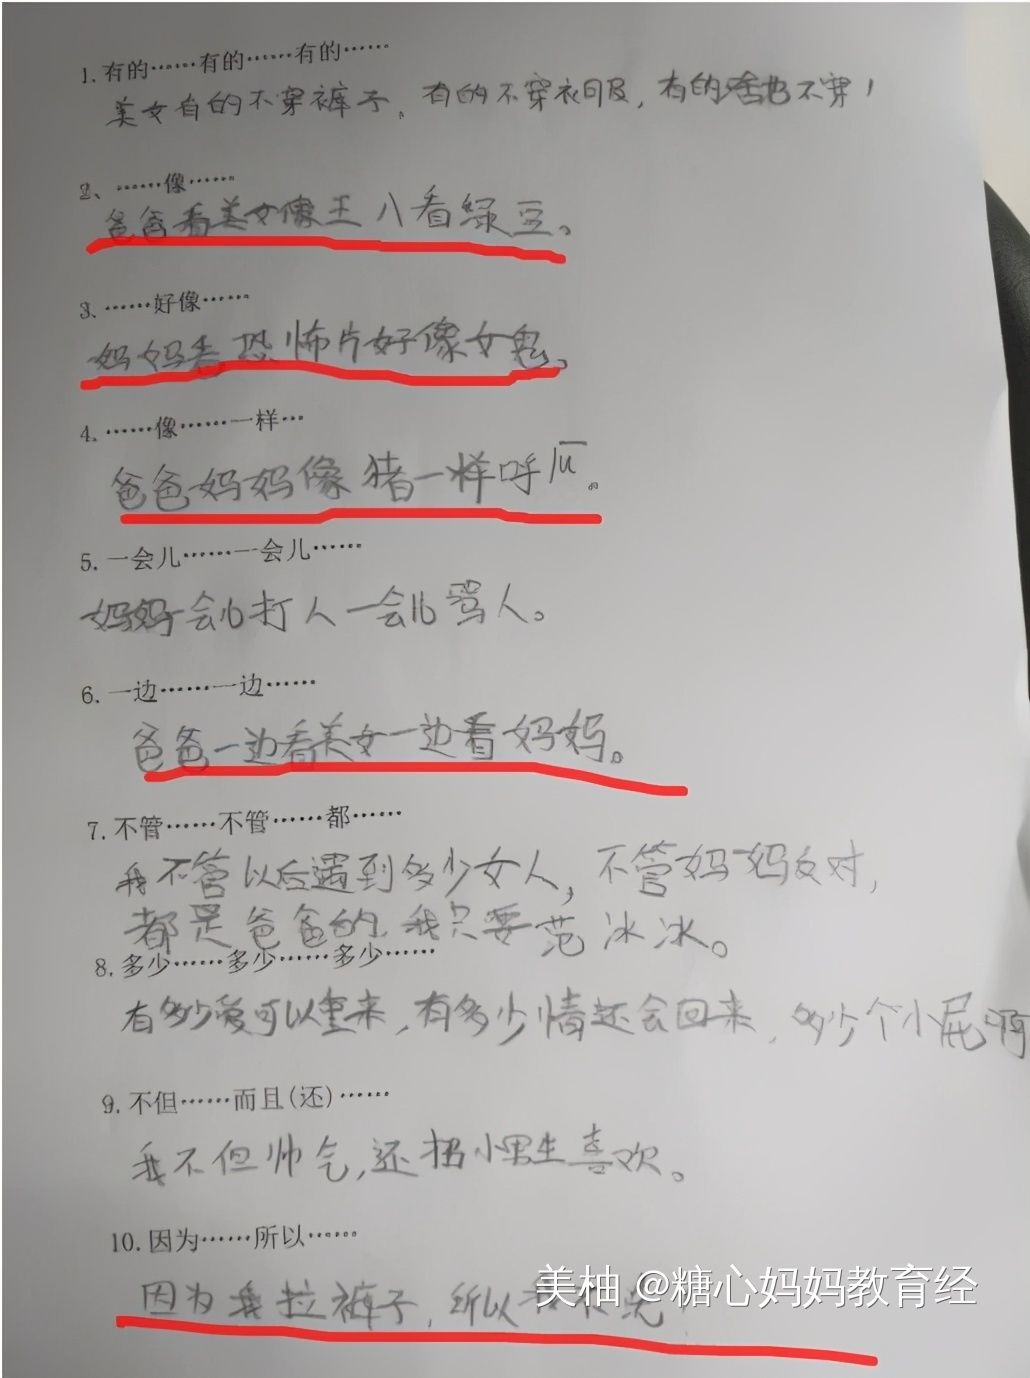 1.有的……有的……有的……
美女有的不穿裤子。有的不穿衣服，有的啥也不穿！
2、……像……
爸爸看美女像王八看绿豆。
3.……好像……
妈妈看恐怖片好像女鬼。
4.……像……一样…
爸爸妈妈像猪一样呼
5.一会儿……一会儿……
妈妈一会儿打人一会儿骂人。
6.一边……一边……
爸爸一边看美女一边看妈妈。
7.不管……不管……都……
我不管以后遇到多少女人，不管妈妈反对，
都是爸爸的，我只要范冰冰。
8.多少……多少……多少……
有多少爱可以重来，有多少情还会回来，多少个小屁啊
9.不但……而且(还)……
我不但帅气，还招小男生喜欢。
10.因为……所以……
因为我拉裤子，所以我
美柚 @糖心妈妈教育经